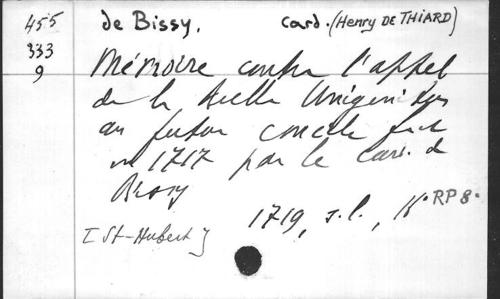 455 de Bissy. card. (Henry DE THIARD)
333
9
Mémoire contre l'appel
de la Bulle Unigenitus
au futur concile fait
en 1717 par le card. de
Bissy
1719, s.l., 16° RP 8°
[St-Hubert]